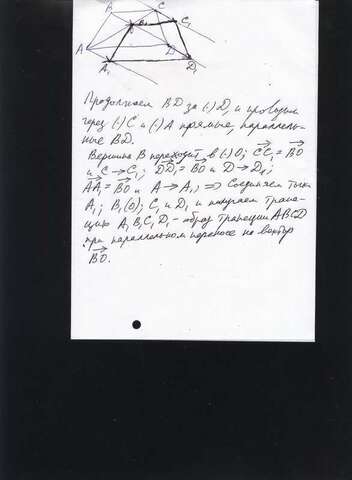 B C
B₁ C₁
A D
A₁ D₁
Продолжаем BD за (·) D, и проводим
через (·) C и (·) A прямые, параллель-
ные BD.
Вершина B переходит в (·) O; CC₁ = BO
и C → C₁; DD₁ = BO и D → D₁;
AA₁ = BO и A → A₁) => Соединяем точки
A₁; B₁(O); C₁ и D₁ и получаем трапе-
цию A₁B₁C₁D₁ - образ трапеции ABCD
при параллельном переносе на вектор
BO.